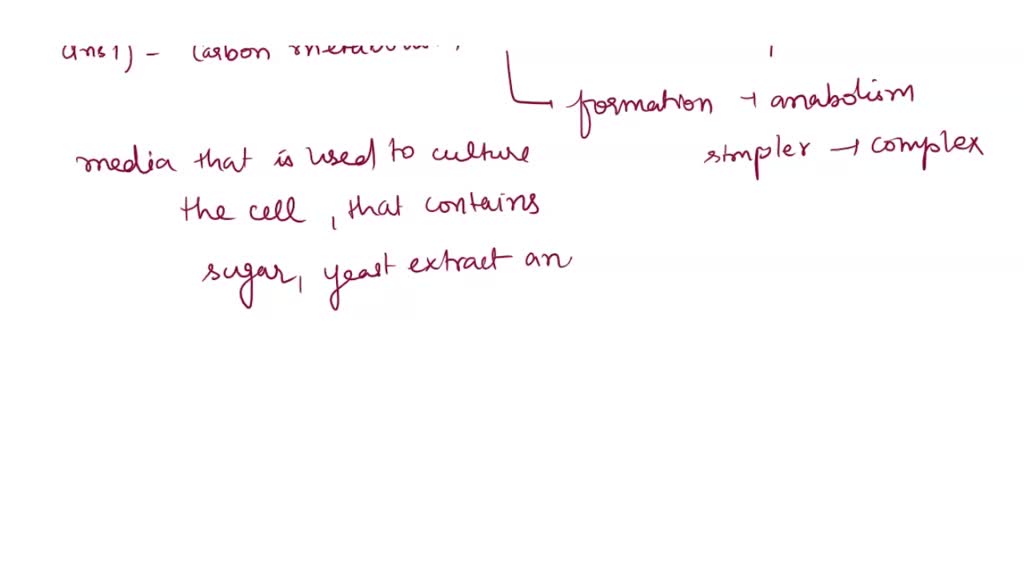 Ans 1) - Carbon
formation → anabolism
simpler → complex
media that is used to culture
the cell, that contains
sugar, yeast extract an